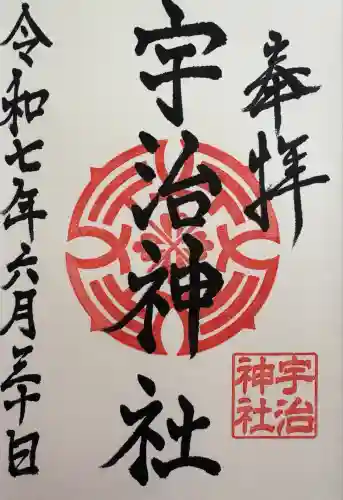 奉拝
宇治神社
宇治
神社
令和七年六月三十日